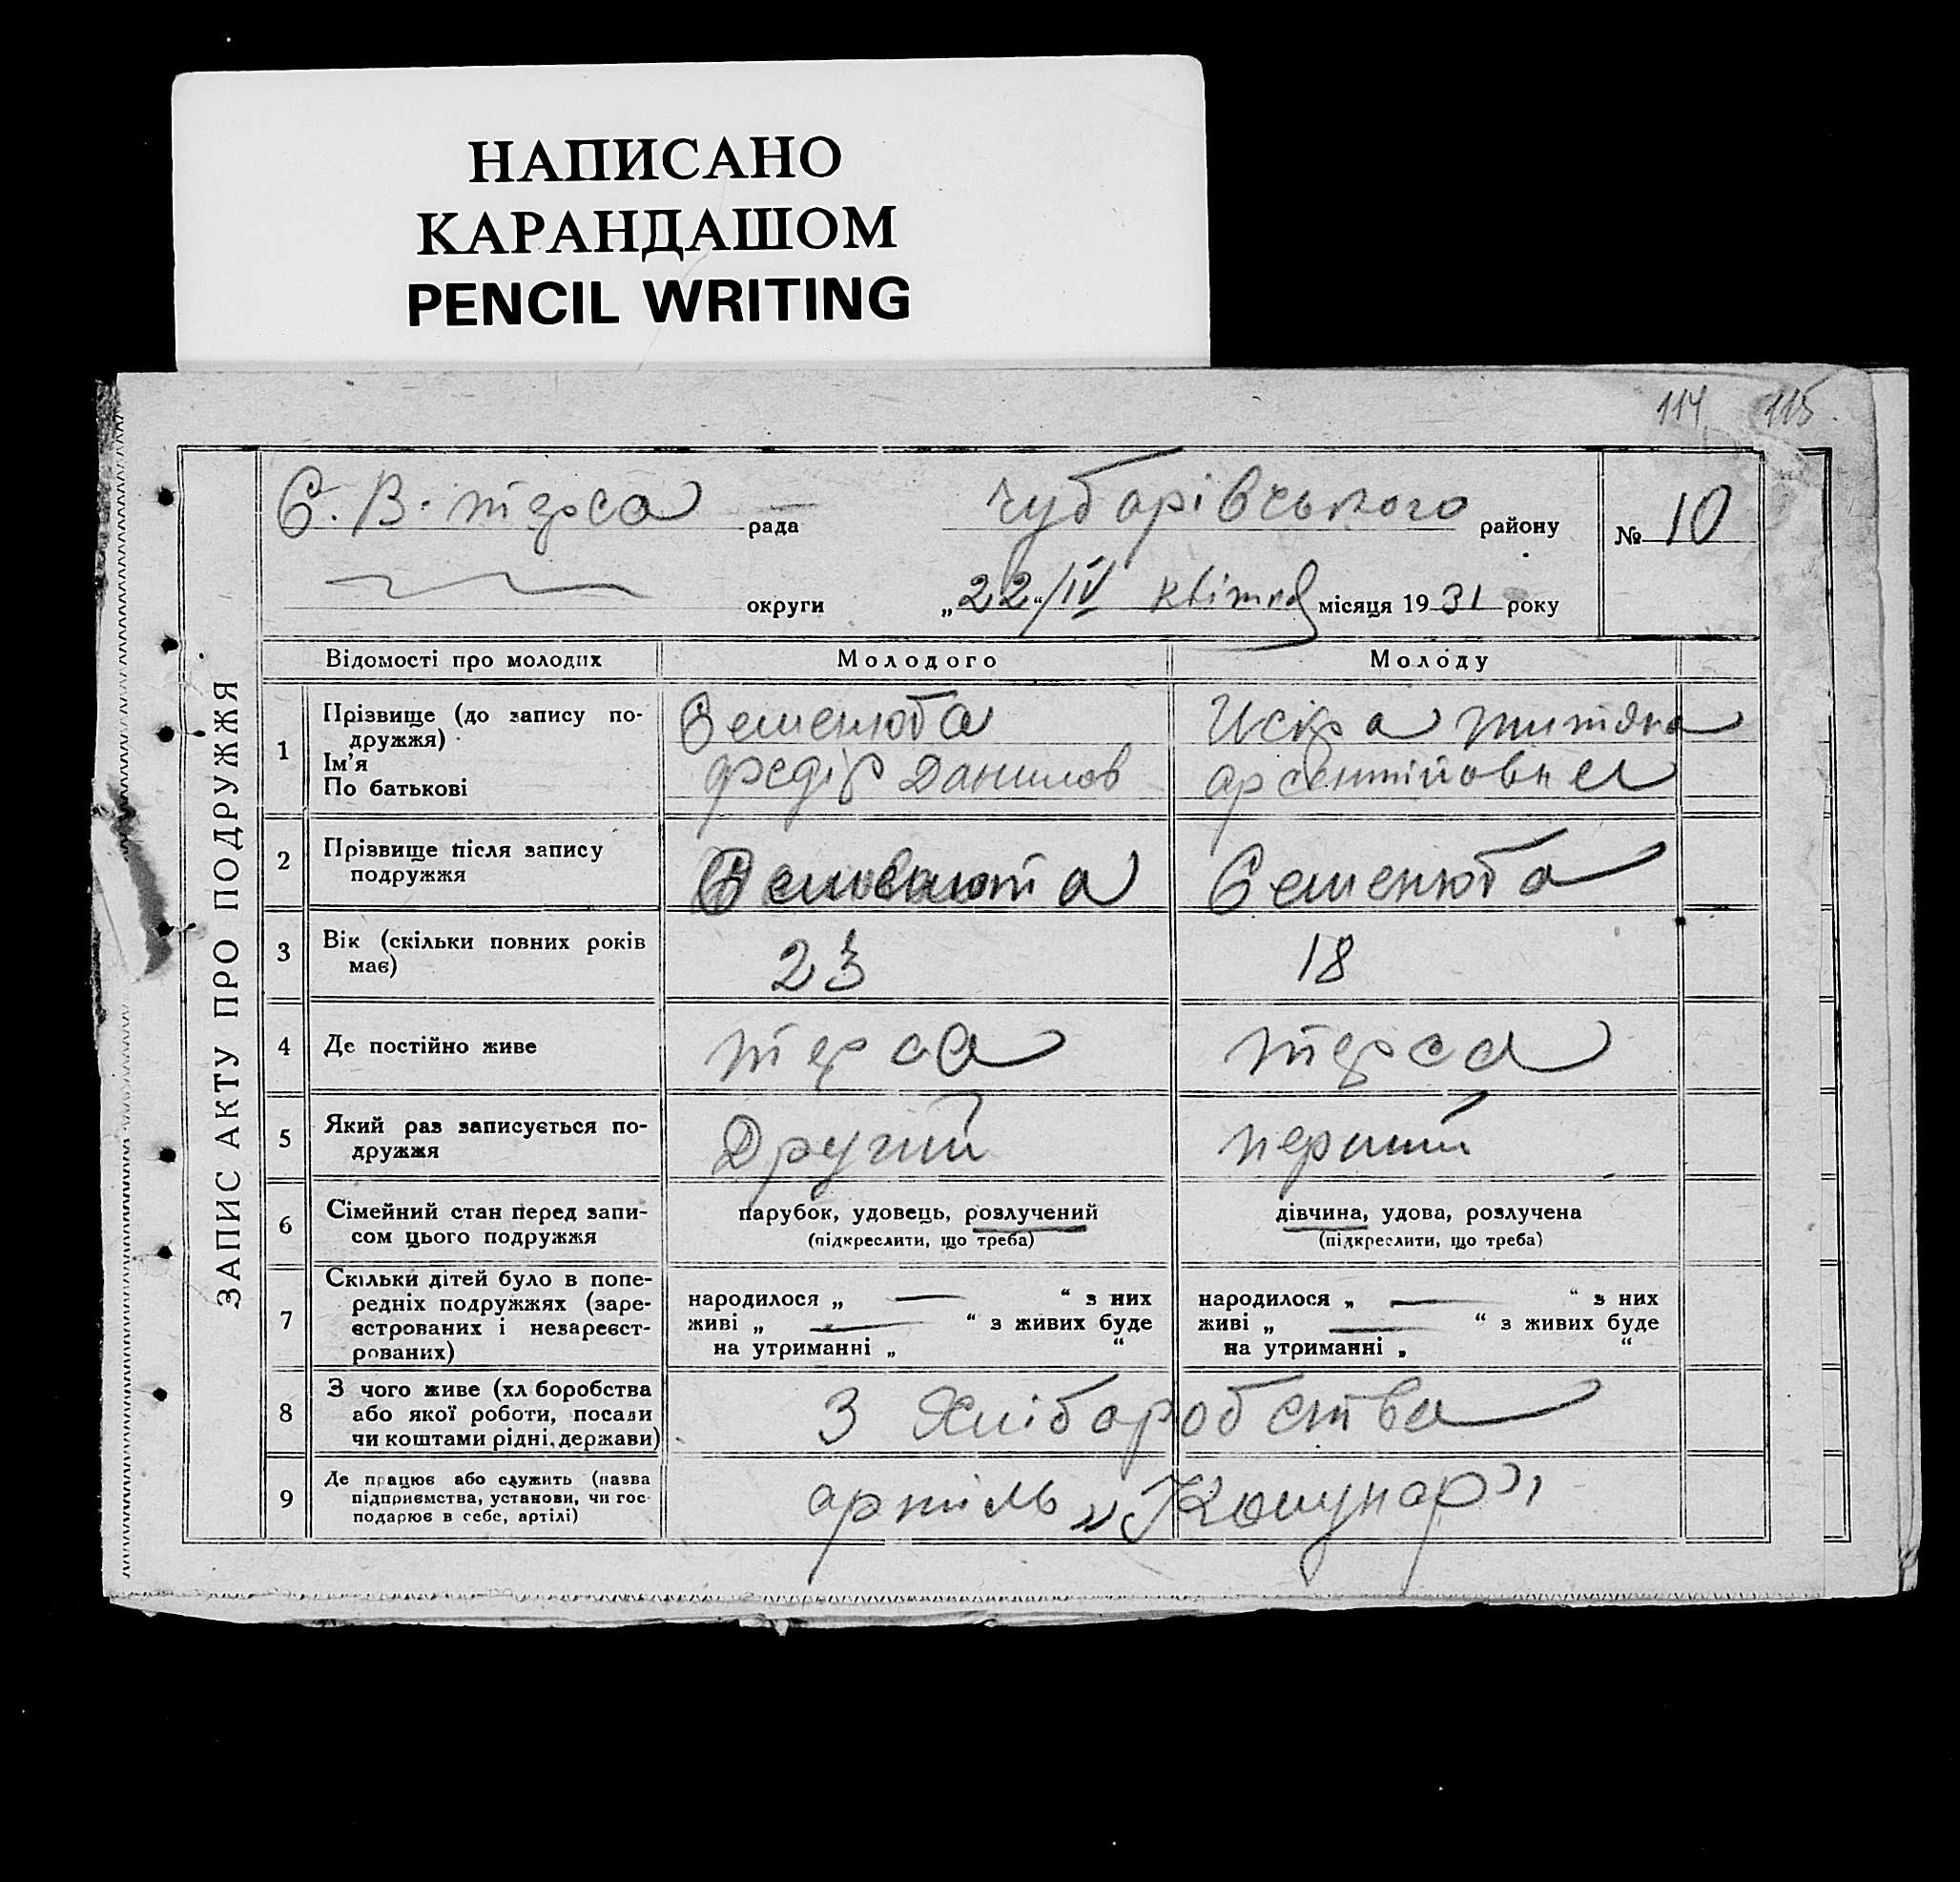 НАПИСАНО
КАРАНДАШОМ
PENCIL WRITING
114 115
ЗАПИС АКТУ ПРО ПОДРУЖЖЯ
С. В. терса рада чубарівського району № 10
округи „22“/IV квітня місяця 1931 року
Відомості про молодих Молодого Молоду
1 Прізвище (до запису по-
дружжя)
Ім'я
По батькові
Семенюта
федір Данилов
Искра титяна
арсентійовна
2 Прізвище після запису
подружжя
Семенюта
3 Вік (скільки повних років
має)
23 18
4 Де постійно живе терса терса
5 Який раз записується по-
дружжя
Другий перший
6 Сімейний стан перед запи-
сом цього подружжя
парубок, удовець, розлучений
(підкреслити, що треба)
дівчина, удова, розлучена
(підкреслити, що треба)
7 Скільки дітей було в попе-
редніх подружжях (заре-
єстрованих і незареєст-
рованих)
народилося „ — “ з них
живі „ — “ з живих буде
на утриманні „ “
народилося „ — “ з них
живі „ — “ з живих буде
на утриманні „ “
8 З чого живе (хл боробства
або якої роботи, посади
чи коштами рідні, держави)
З хліборобства
9 Де працює або служить (назва
підприємства, установи, чи гос-
подарює в себе, артілі)
артіль „Комунар"